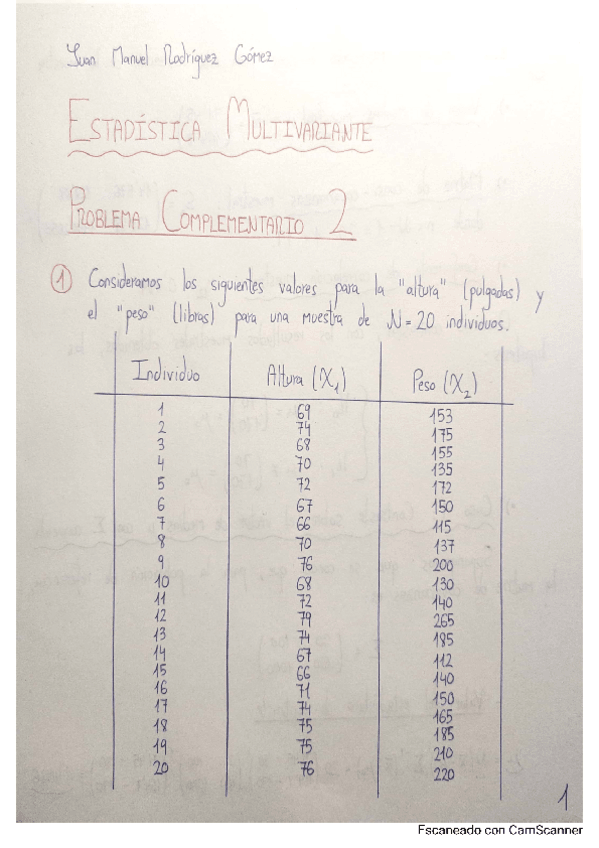 Juan Manuel Rodríguez Gómez
ESTADÍSTICA MULTIVARIANTE
PROBLEMA COMPLEMENTARIO 2
1 Consideramos los siguientes valores para la "altura" (pulgadas) y
el "peso" (libras) para una muestra de N = 20 individuos.
Individuo Altura (X₁) Peso (X₂)
1 69 153
2 74 175
3 68 155
4 70 135
5 72 172
6 67 150
7 66 115
8 70 137
9 76 200
10 68 130
11 72 140
12 79 265
13 74 185
14 67 112
15 66 140
16 71 150
17 74 165
18 75 185
19 75 210
20 76 220
1
Escaneado con CamScanner